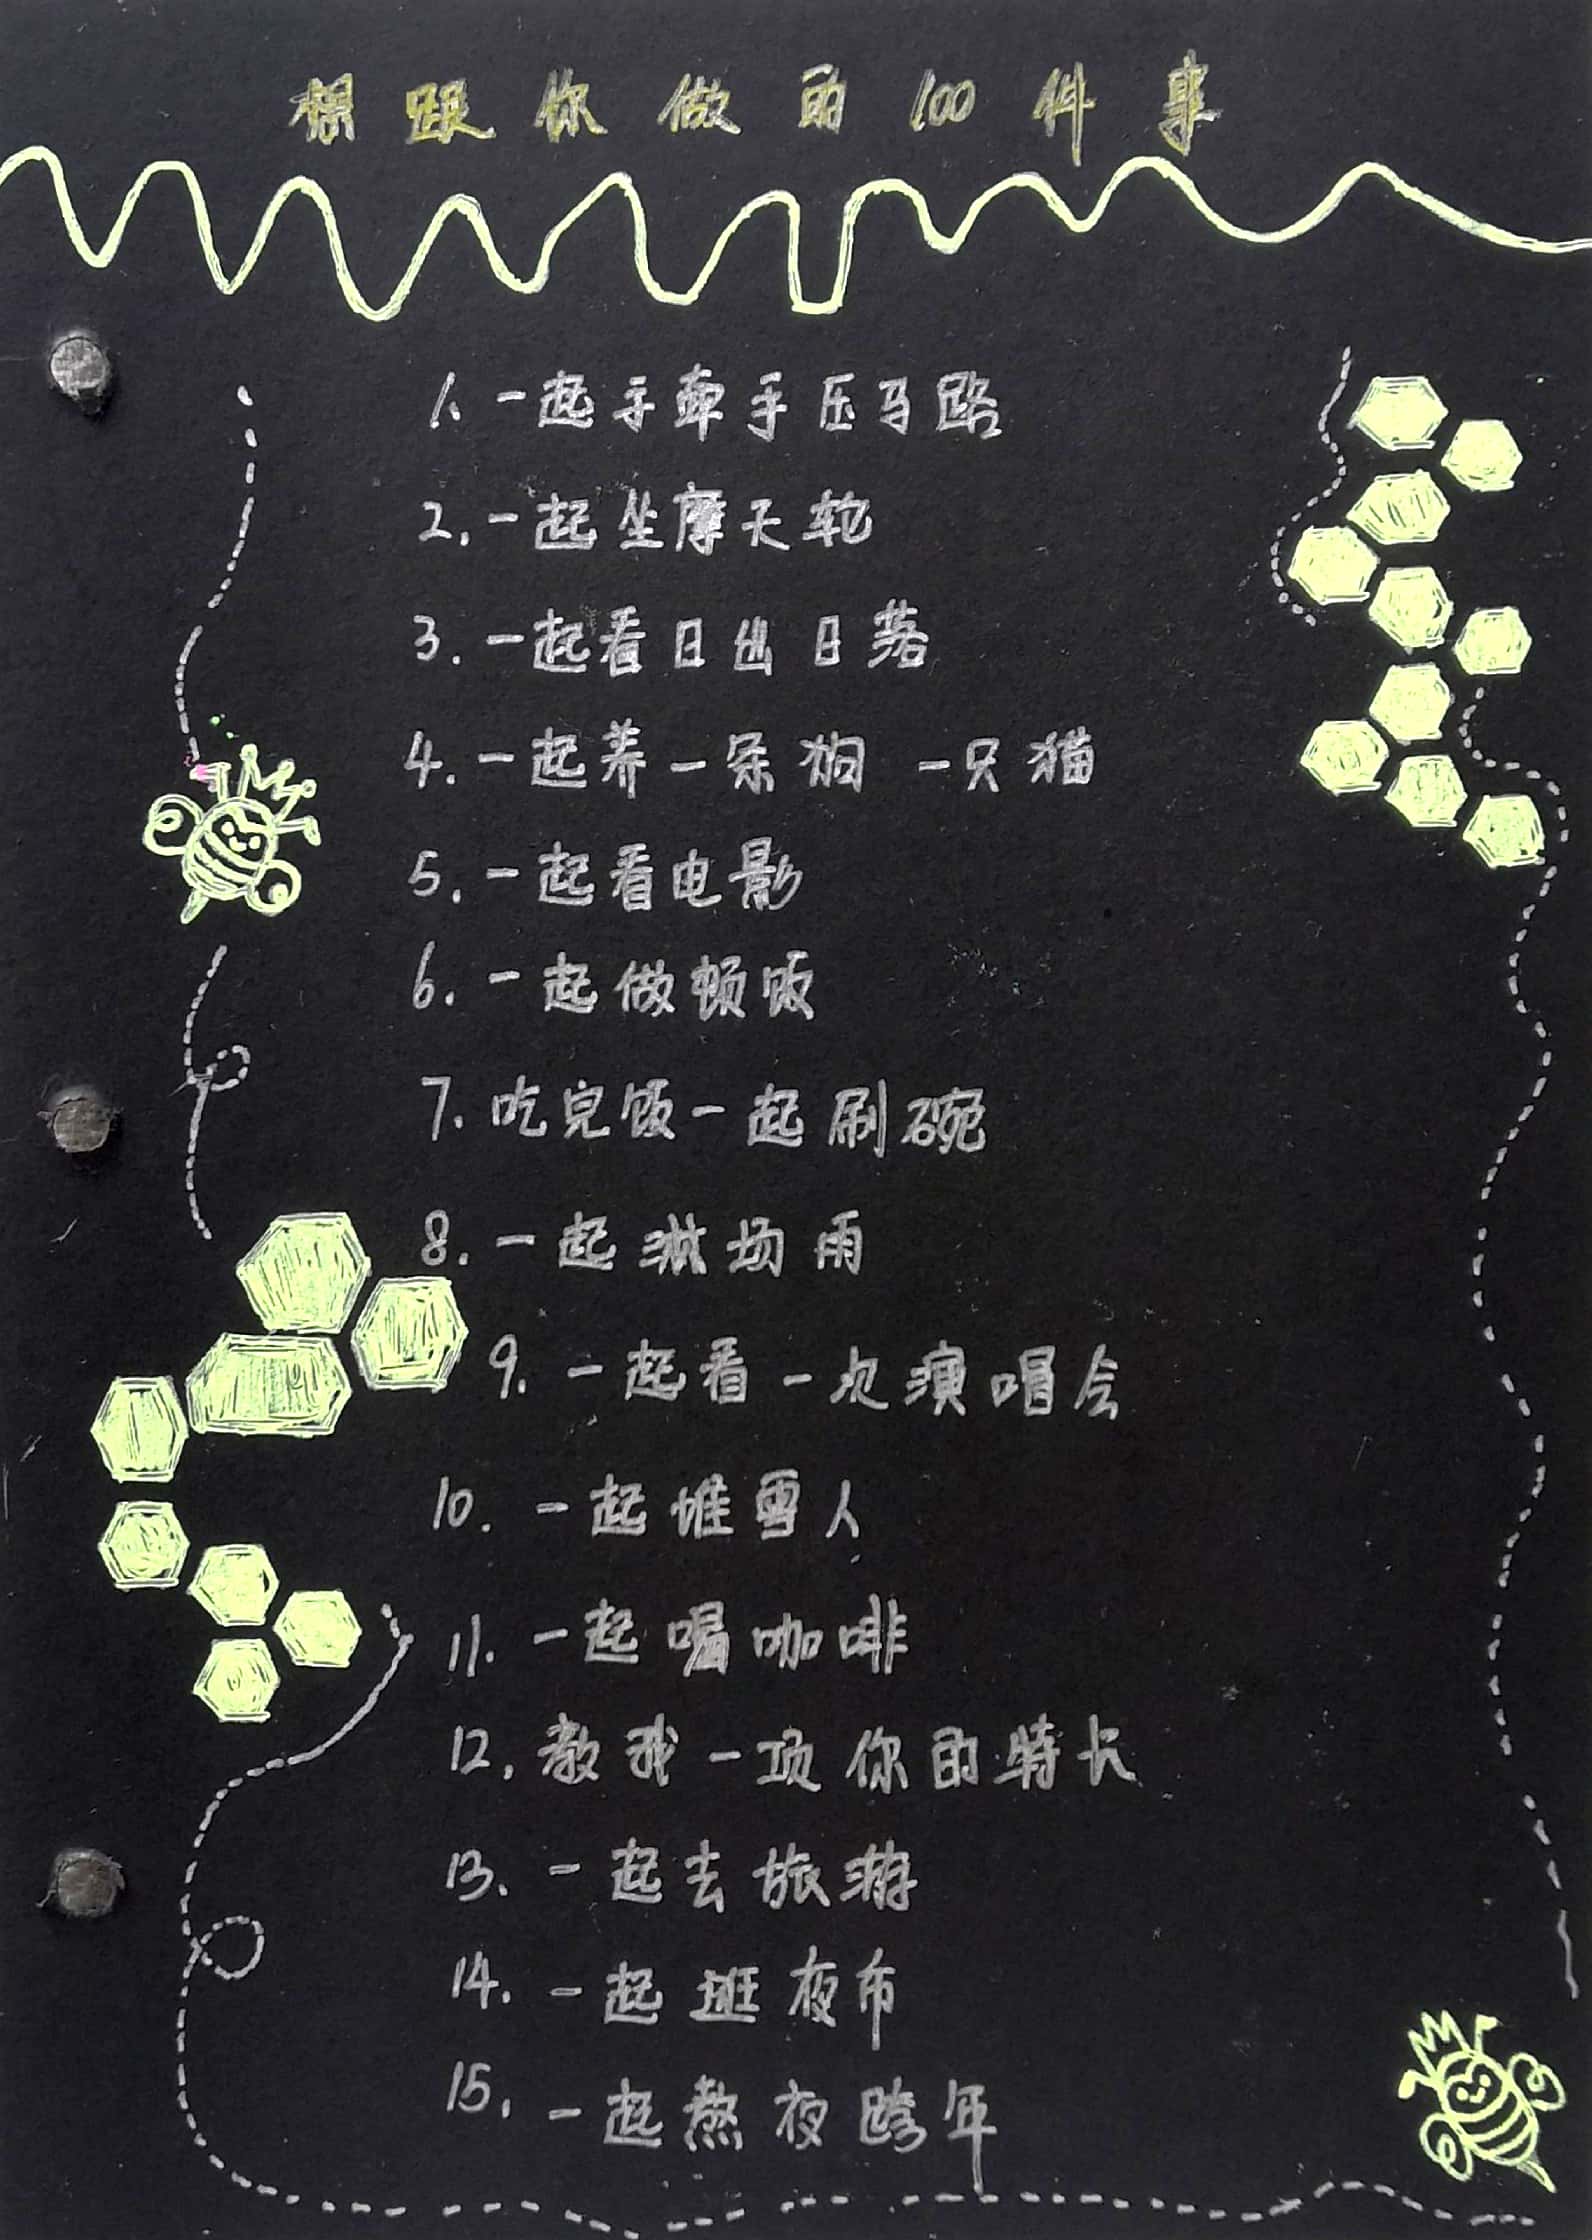 想跟你做的100件事
1. 一起手牵手压马路
2. 一起坐摩天轮
3. 一起看日出日落
4. 一起养一条狗 一只猫
5. 一起看电影
6. 一起做顿饭
7. 吃完饭一起刷碗
8. 一起淋场雨
9. 一起看一次演唱会
10. 一起堆雪人
11. 一起喝咖啡
12. 教我一项你的特长
13. 一起去旅游
14. 一起逛夜市
15. 一起熬夜跨年